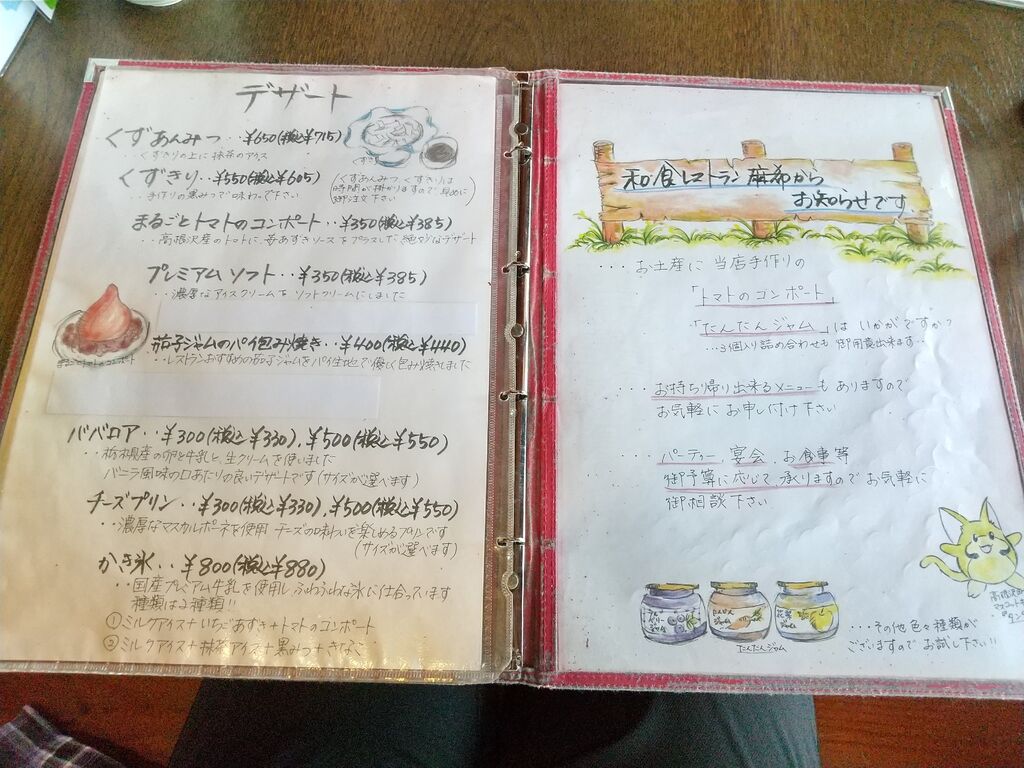 デザート
くずあんみつ・・¥650(税込¥715)
・・くずきりの上に抹茶のアイス
くずきり・・¥550(税込¥605)
・・手作りの黒みつで味わって下さい
(くずあんみつ、くずきりは
時間が掛かりますので早めに
御注文下さい)
まるごとトマトのコンポート・・¥350(税込¥385)
・・高根沢産のトマトに、苺あずきソースをプラスした絶妙なデザート
プレミアム ソフト・・¥350(税込¥385)
・・濃厚なアイスクリームを ソフトクリームにしました
茄子ジャムのパイ包み焼き・・¥400(税込¥440)
・・レストランおすすめの茄子ジャムをパイ生地で優しく包み焼きしました
まるごとトマトのコンポート
ババロア・・¥300(税込¥330),¥500(税込¥550)
・・栃木県産の卵と牛乳と、生クリームを使いました
バニラ風味の口あたりの良いデザートです(サイズが選べます)
チーズプリン・・¥300(税込¥330),¥500(税込¥550)
・・濃厚なマスカルポーネを使用 チーズの味わいを楽しめるプリンです
(サイズが選べます)
かき氷・・¥800(税込¥880)
・・国産プレミアム牛乳を使用し、ふわふわな氷に仕合っています
種類は2種類!!
①ミルクアイス+いちごあずき+トマトのコンポート
②ミルクアイス+抹茶アイス+黒みつ+きなこ
和食レストラン 麻希から
お知らせです
・・・お土産に 当店手作りの
「トマトのコンポート」
「たんたんジャム」は いかがですか?
・・・3個入り詰め合わせも 御用意出来ます・・
・・・お持ち帰り出来るメニューもありますので
お気軽に お申し付け下さい
・・・パーティー、宴会、お食事等
御予算に応じて 承りますので お気軽に
御相談下さい
たんたんジャム
・・・その他 色々種類が
ございますので お試し下さい!!